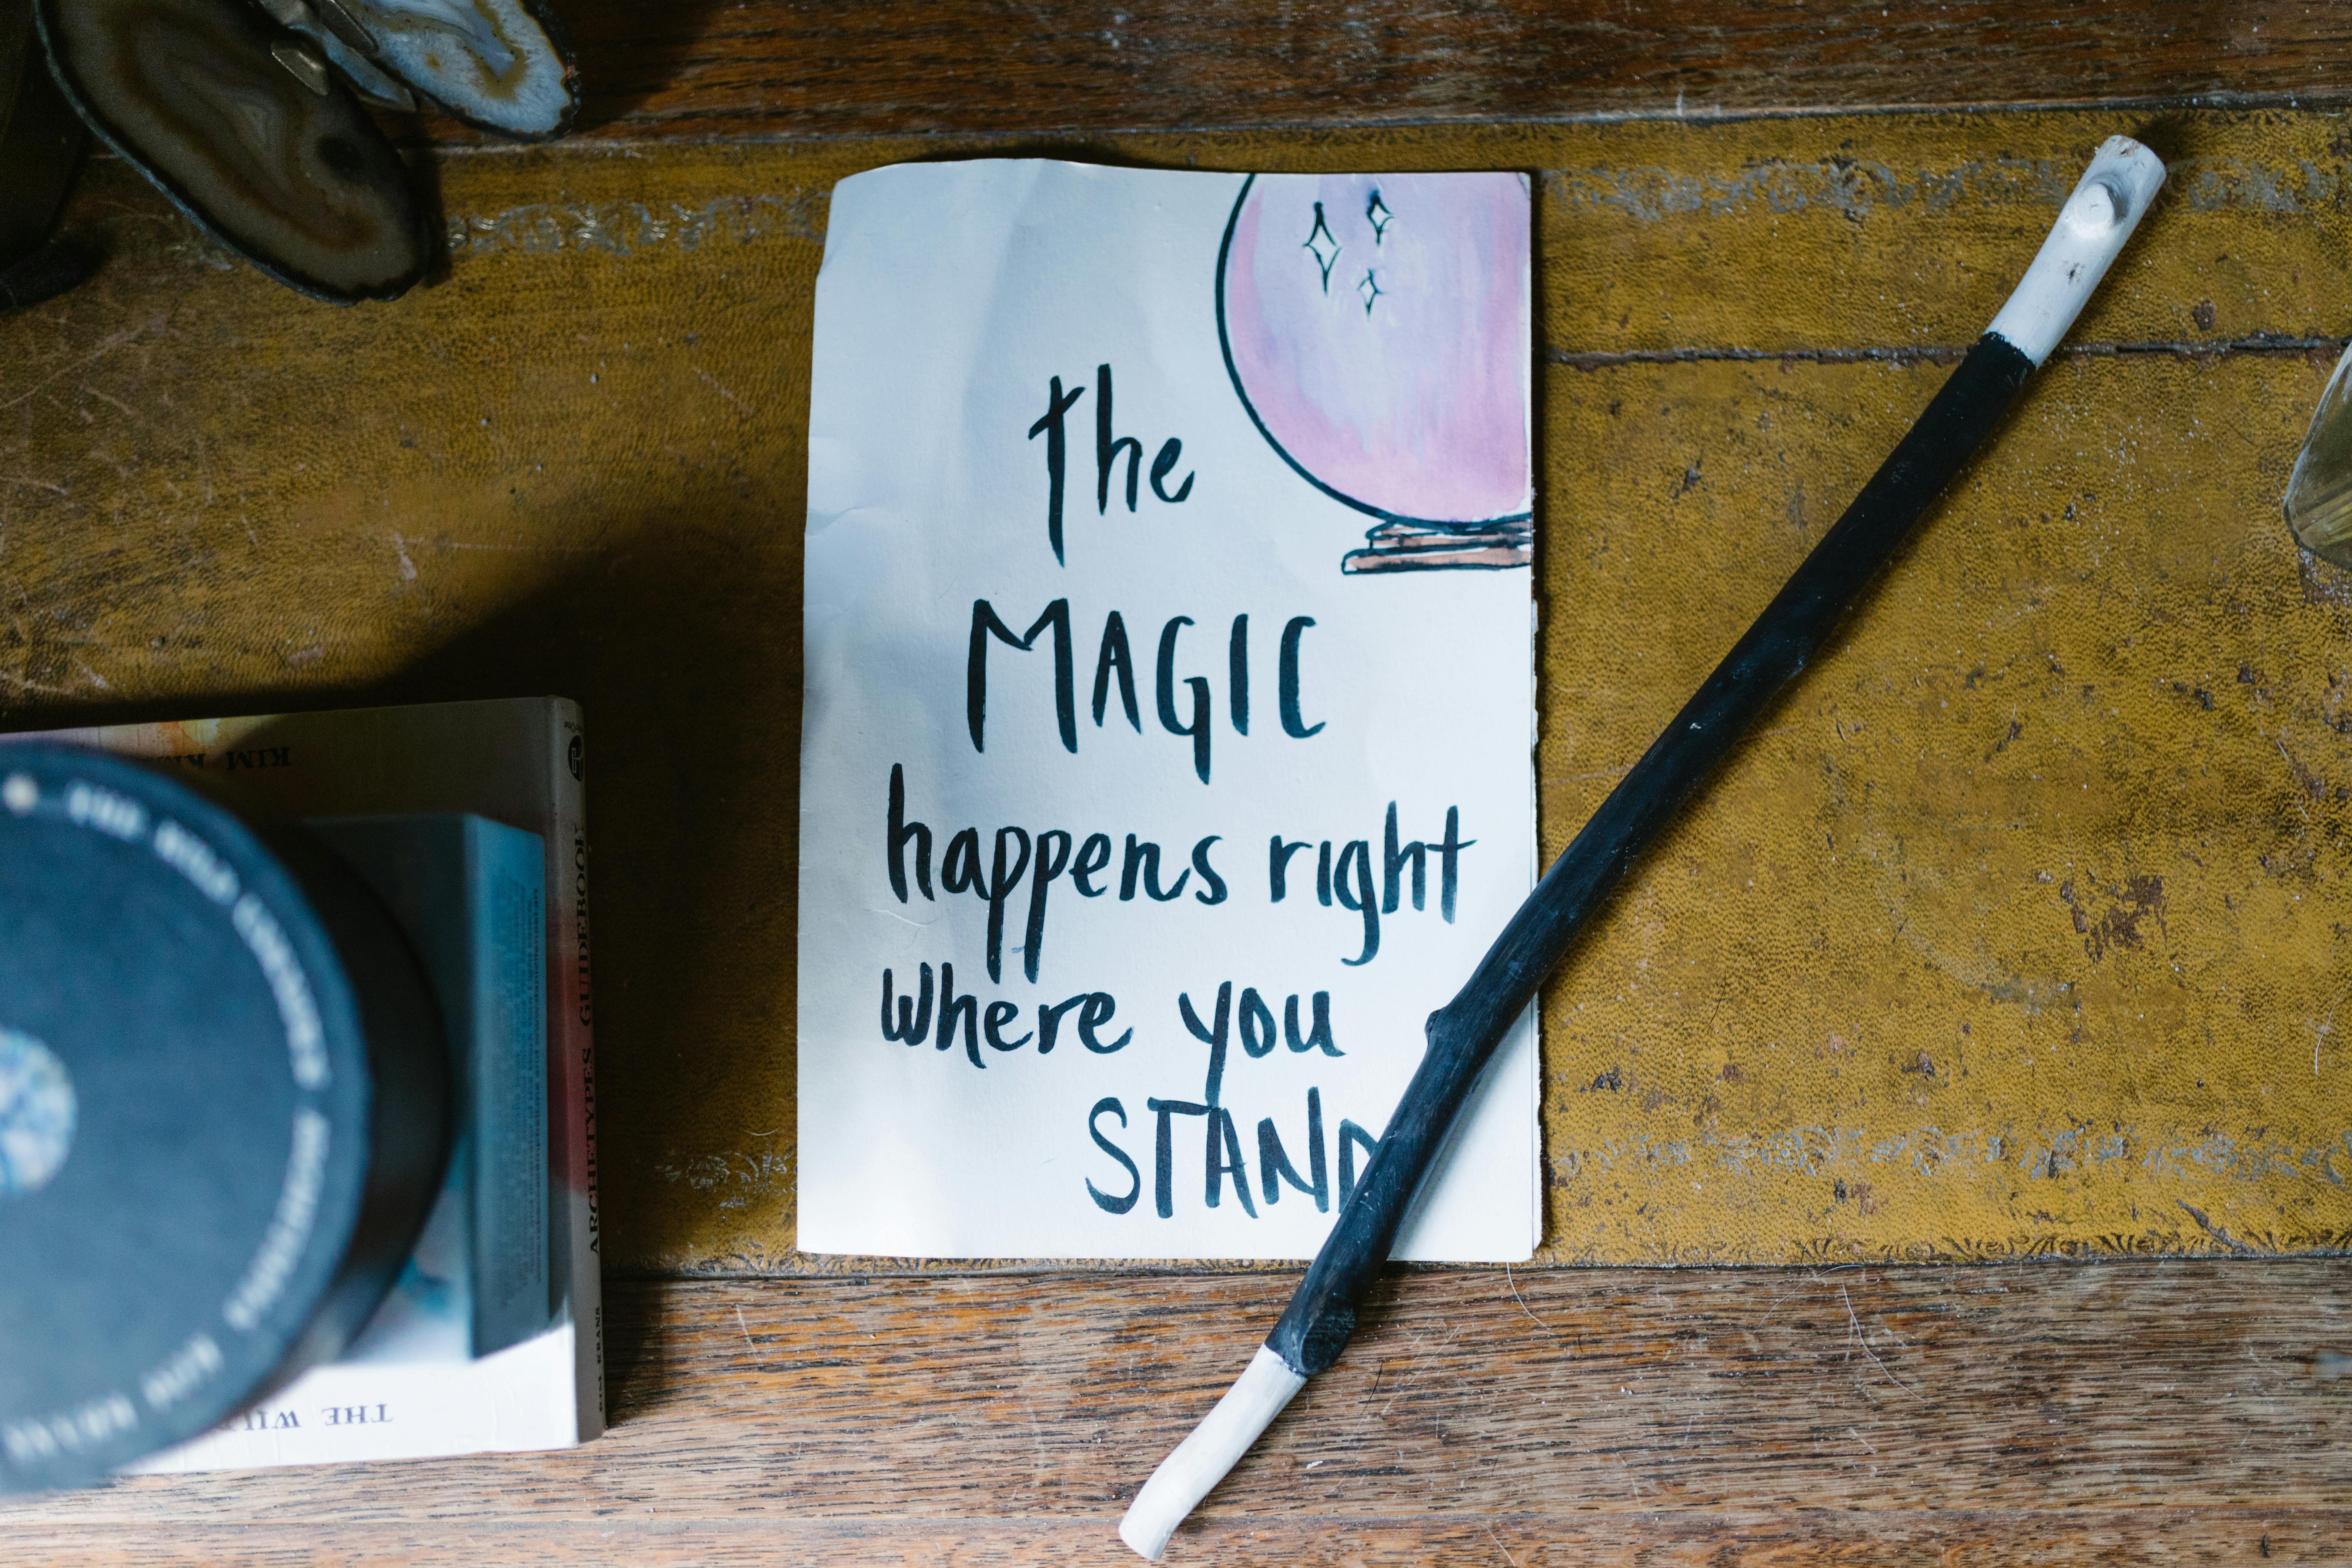 the
MAGIC
happens right
where you
STAND
KIM
ARCHETYPES GUIDEBOOK
KIM KRANS
THE